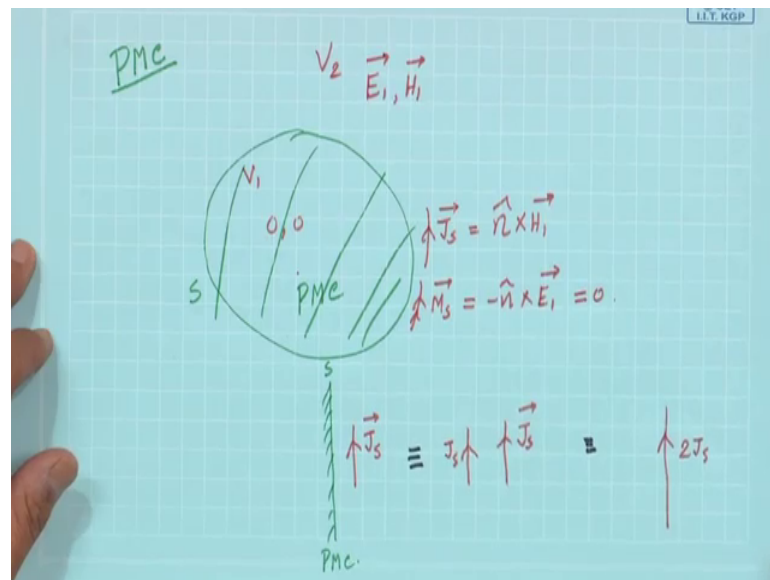 I.I.T. KGP
PMC
V₂ E⃗₁, H⃗₁
V₁
0, 0
J⃗s = n̂ × H⃗₁
S
PMC
M⃗s = -n̂ × E⃗₁ = 0.
S
J⃗s ≡ Js J⃗s ≡ 2Js
PMC.